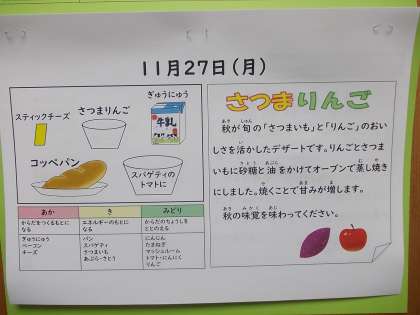 11月27日(月)
スティックチーズ
さつまりんご
ぎゅうにゅう
牛乳
コッペパン
スパゲティの
トマトに
あか
き
みどり
からだをつくるもとに
なる
エネルギーのもとに
なる
からだのちょうしを
ととのえる
ぎゅうにゅう
ベーコン
チーズ
パン
スパゲティ
さつまいも
あぶら・さとう
にんじん
たまねぎ
マッシュルーム
トマト・にんにく
りんご
さつまりんご
秋が旬の「さつまいも」と「りんご」のおい
しさを活かしたデザートです。りんごとさつま
いもに砂糖と油をかけてオーブンで蒸し焼き
にしました。焼くことで甘みが増します。
秋の味覚を味わってください。